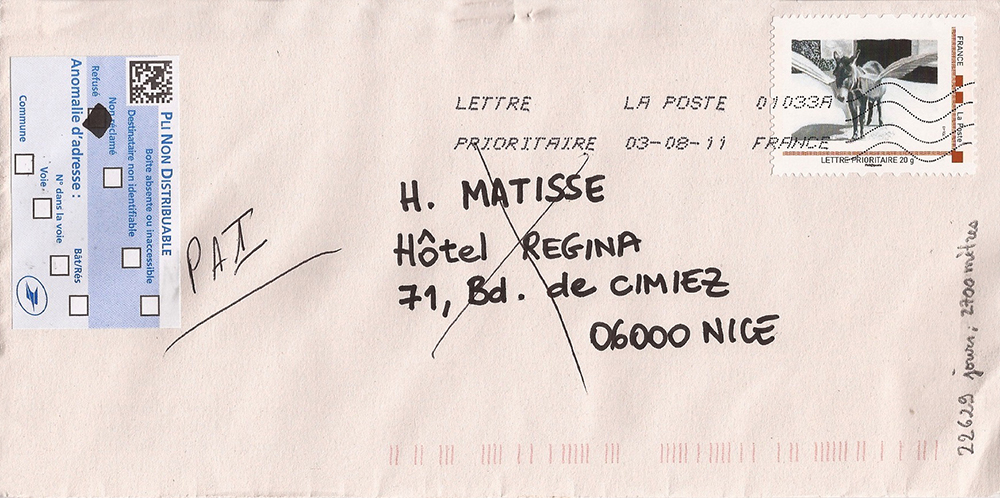 LETTRE LA POSTE 01033A
PRIORITAIRE 03-08-11 FRANCE
FRANCE
La Poste
LETTRE PRIORITAIRE 20 g
H. MATISSE
Hôtel REGINA
71, Bd. de CIMIEZ
06000 NICE
PLI NON DISTRIBUABLE
Boîte absente ou inaccessible
Destinataire non identifiable
Non réclamé
Refusé
Anomalie d'adresse :
Bât/Rés
N° dans la voie
Voie :
Commune
22629 jours; 2700 mètres